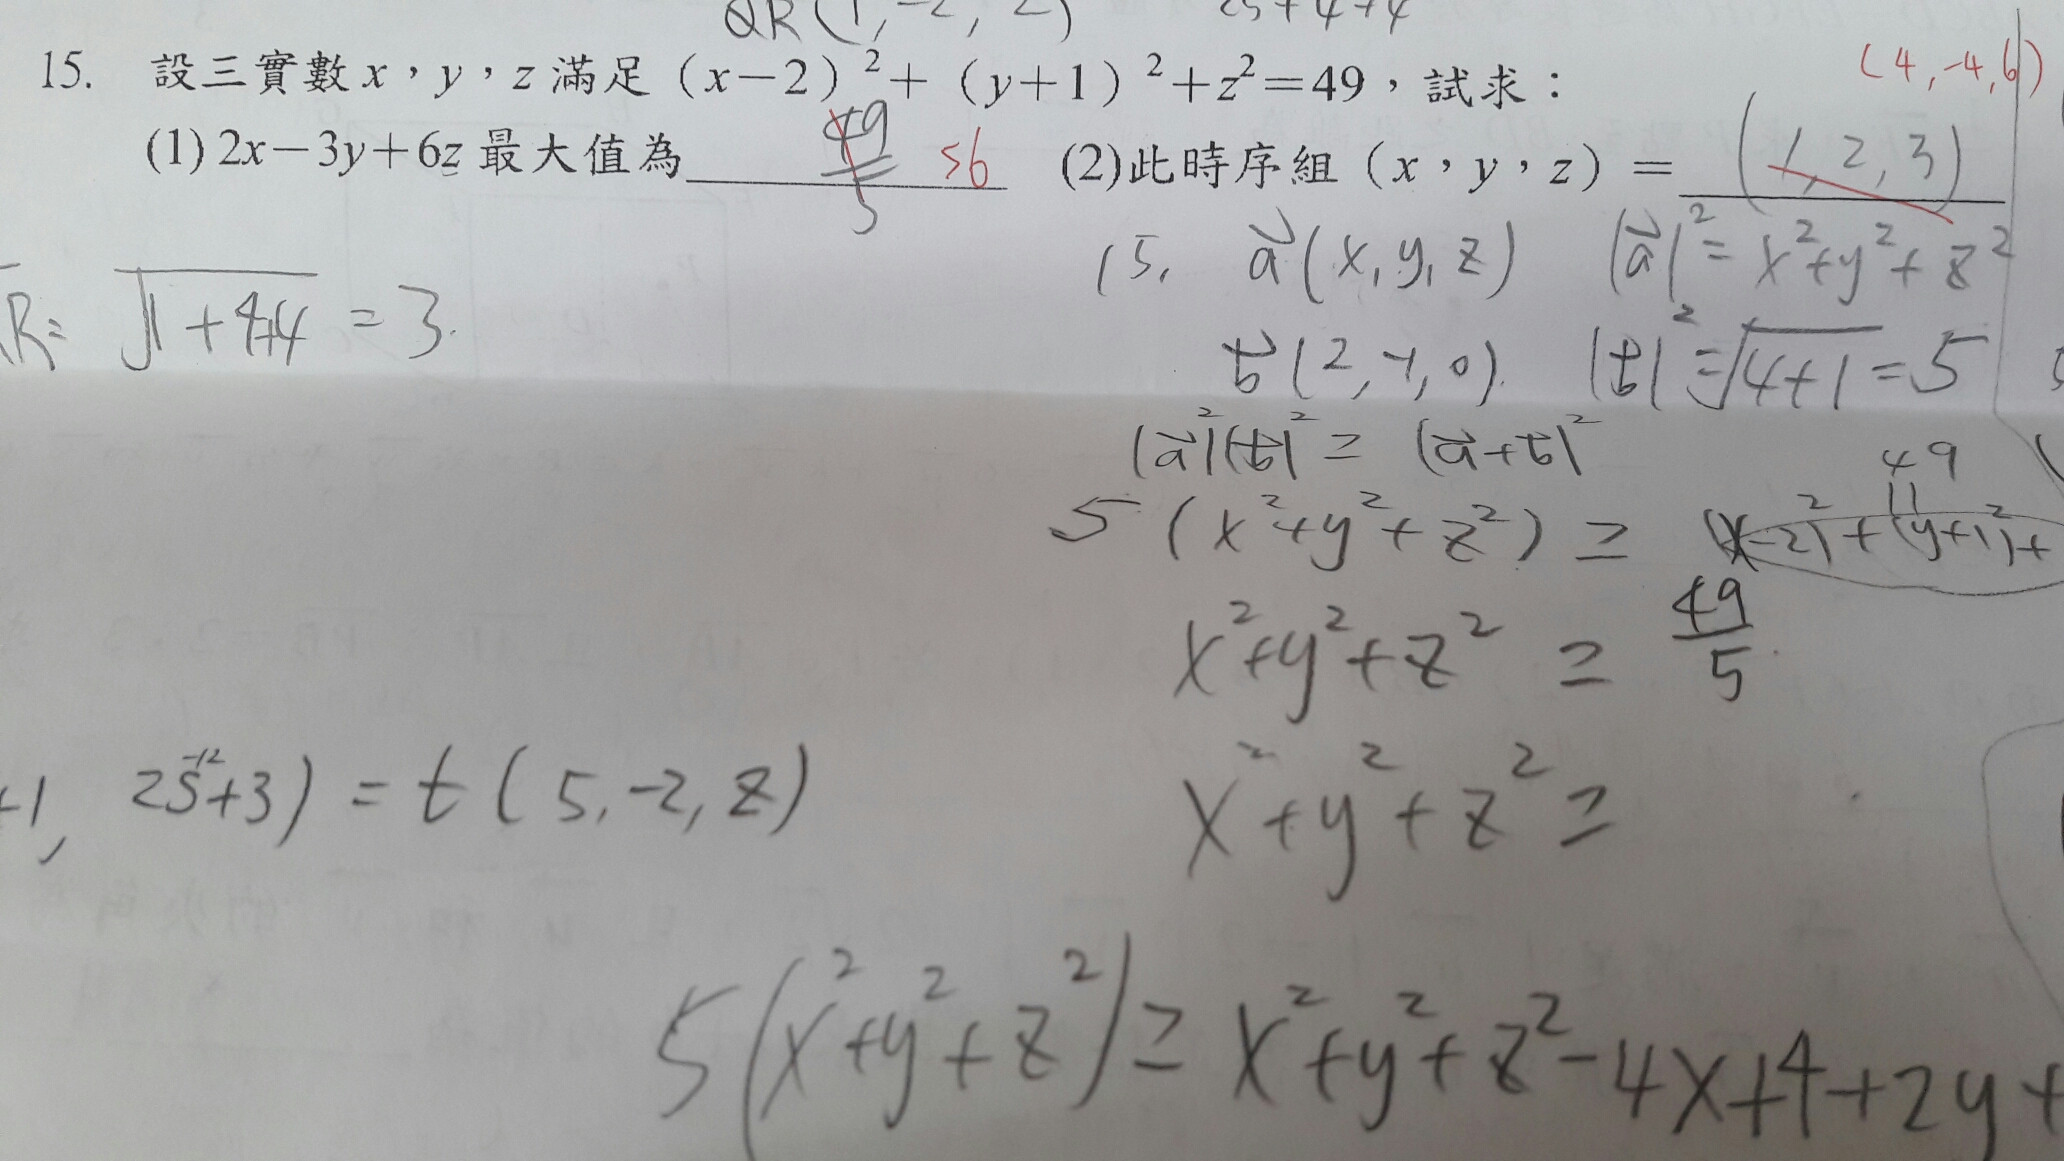 QR(1,-2,2) 25+4+4
15. 設三實數x,y,z滿足(x-2)²+(y+1)²+z²=49,試求:
(4,-4,6)
(1) 2x-3y+6z最大值為 49/5 56 (2)此時序組(x,y,z)= (1,2,3)
15. a⃗(x,y,z) |a⃗|²=x²+y²+z²
R= √1+4+4 = 3.
b⃗(2,-1,0). |b⃗|²=√4+1=5
|a⃗|²|b⃗|² ≥ (a⃗+b⃗)²
49
5(x²+y²+z²) ≥ (x-2)²+(y+1)²+
x²+y²+z² ≥ 49/5
+1, 2s+3) = t(5,-2,2)
x²+y²+z² ≥
5(x²+y²+z²) ≥ x²+y²+z²-4x+4+2y+